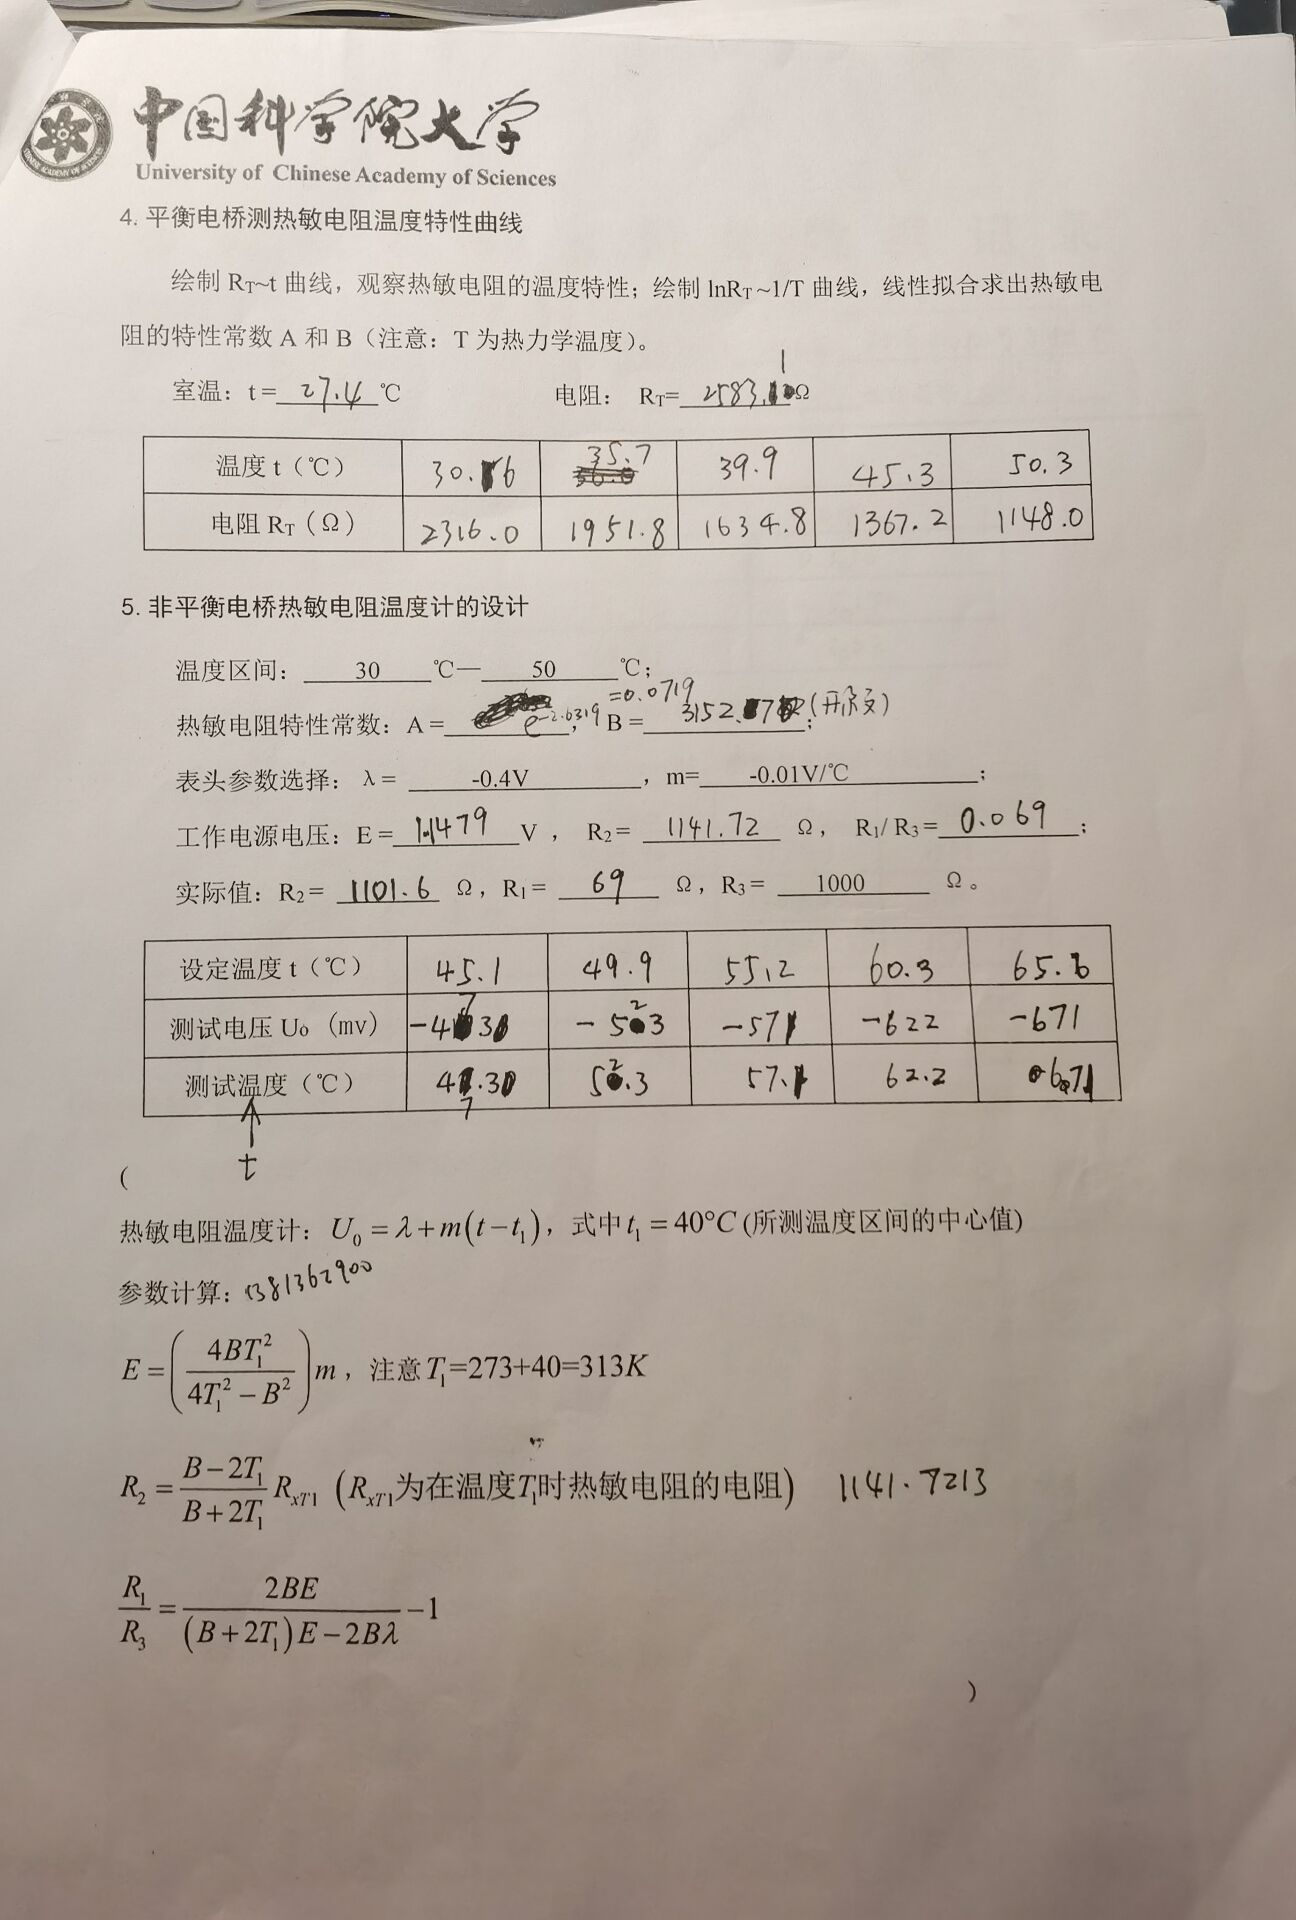 中国科学院大学
University of Chinese Academy of Sciences
4. 平衡电桥测热敏电阻温度特性曲线
绘制 R_T~t 曲线，观察热敏电阻的温度特性；绘制 lnR_T ~1/T 曲线，线性拟合求出热敏电
阻的特性常数 A 和 B（注意：T 为热力学温度）。
室温：t = 27.4 ℃ 电阻： R_T= 2583.1 Ω
温度 t（℃） 30.6 35.7 39.9 45.3 50.3
电阻 R_T（Ω） 2316.0 1951.8 1634.8 1367.2 1148.0
5. 非平衡电桥热敏电阻温度计的设计
温度区间： 30 ℃— 50 ℃；
热敏电阻特性常数：A = e^-2.6319 =0.0719， B = 3152.77（开尔文）；
表头参数选择：λ = -0.4V ，m= -0.01V/℃ ；
工作电源电压：E = 1.1479 V ， R₂= 1141.72 Ω， R₁/ R₃= 0.069 ；
实际值：R₂ = 1101.6 Ω，R₁ = 69 Ω，R₃ = 1000 Ω。
设定温度 t（℃） 45.1 49.9 55.2 60.3 65.
测试电压 U₀ (mv) -473 -523 -571 -622 -671
测试温度（℃） 47.3 52.3 57.1 62.2 67.1
t
(
热敏电阻温度计：U₀ = λ + m(t − t₁)，式中 t₁ = 40°C (所测温度区间的中心值)
参数计算：1381362900
E = (4BT₁² / (4T₁² − B²)) m ，注意 T₁=273+40=313K
R₂ = (B − 2T₁)/(B + 2T₁) R_xT1 (R_xT1为在温度T₁时热敏电阻的电阻) 1141.7213
R₁/R₃ = 2BE/((B + 2T₁)E − 2Bλ) − 1
)